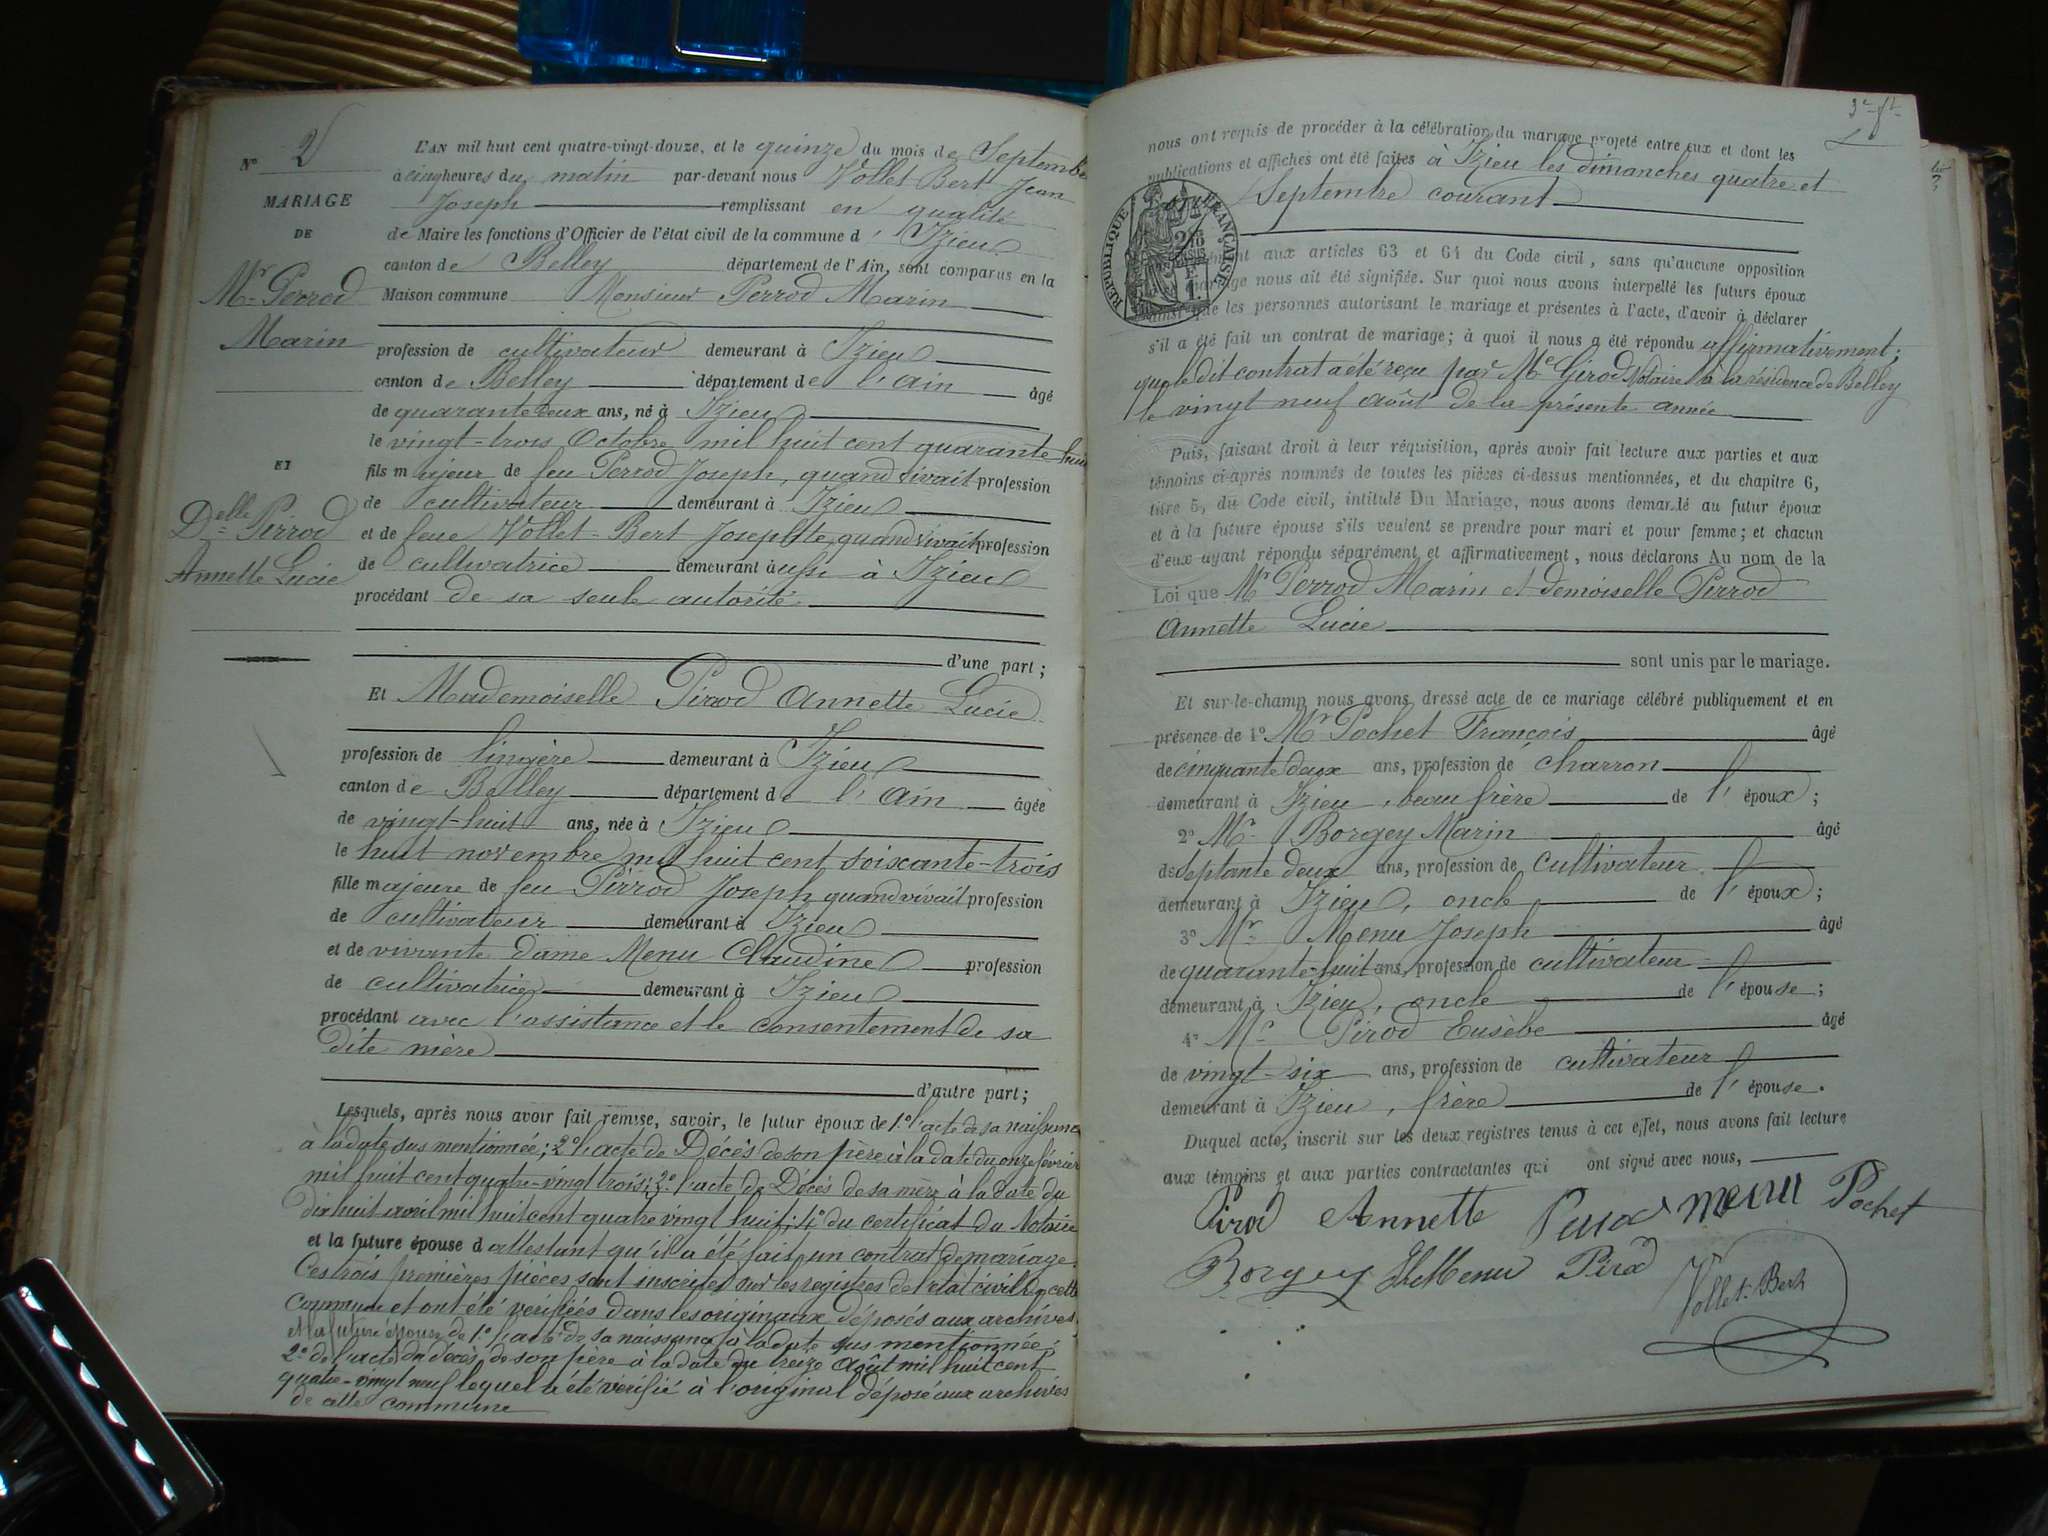 N° 2
MARIAGE
DE
Mr Perrod
Marin
ET
Delle Pirrod
Annette Lucie
L'AN mil huit cent quatre-vingt-douze, et le quinze du mois de Septembre
à cinq heures du matin par-devant nous Vollet Bert Jean
Joseph remplissant en qualité
de Maire les fonctions d'Officier de l'état civil de la commune d' Izieu
canton de Belley département de l'Ain, sont comparus en la
Maison commune Monsieur Perrod Marin
profession de cultivateur demeurant à Izieu
canton de Belley département de l'Ain âgé
de quarante deux ans, né à Izieu
le vingt-trois Octobre mil huit cent quarante-huit
fils majeur de feu Perrod Joseph, quand vivait profession
de cultivateur demeurant à Izieu
et de feue Vollet-Bert Josephte, quand vivait profession
de cultivatrice demeurant aussi à Izieu
procédant de sa seule autorité
d'une part ;
Et Mademoiselle Pirrod Annette Lucie
profession de lingère demeurant à Izieu
canton de Belley département de l'Ain âgée
de vingt-huit ans, née à Izieu
le huit novembre mil huit cent soixante-trois
fille majeure de feu Pirrod Joseph quand vivait profession
de cultivateur demeurant à Izieu
et de vivante dame Menu Claudine profession
de cultivatrice demeurant à Izieu
procédant avec l'assistance et le consentement de sa
dite mère
d'autre part ;
Lesquels, après nous avoir fait remise, savoir, le futur époux de 1° l'acte de sa naissance
à la date sus mentionnée; 2° l'acte de Décès de son père à la date du onze février
mil huit cent quatre-vingt trois; 3° l'acte de Décès de sa mère à la date du
dix huit avril mil huit cent quatre vingt huit; 4° du certificat du Notaire
et la future épouse d attestant qu'il a été fait un contrat de mariage.
Ces trois premières pièces sont inscrites sur les registres de l'état civil de cette
commune et ont été vérifiées dans les originaux déposés aux archives.
et la future épouse de 1° l'acte de sa naissance à la date sus mentionnée;
2° de l'acte de décès de son père à la date du treize Août mil huit cent
quatre-vingt neuf lequel a été vérifié à l'original déposé aux archives
de cette commune
nous ont requis de procéder à la célébration du mariage projeté entre eux et dont les
publications et affiches ont été faites à Izieu les dimanches quatre et
Septembre courant
RÉPUBLIQUE FRANÇAISE
aux articles 63 et 64 du Code civil, sans qu'aucune opposition
nous ait été signifiée. Sur quoi nous avons interpellé les futurs époux
ainsi que les personnes autorisant le mariage et présentes à l'acte, d'avoir à déclarer
s'il a été fait un contrat de mariage; à quoi il nous a été répondu affirmativement;
que le dit contrat a été reçu par Me Girod Notaire à la résidence de Belley
le vingt neuf août de la présente année
Puis, faisant droit à leur réquisition, après avoir fait lecture aux parties et aux
témoins ci-après nommés de toutes les pièces ci-dessus mentionnées, et du chapitre 6,
titre 5, du Code civil, intitulé Du Mariage, nous avons demandé au futur époux
et à la future épouse s'ils veulent se prendre pour mari et pour femme; et chacun
d'eux ayant répondu séparément et affirmativement, nous déclarons Au nom de la
Loi que Mr Perrod Marin et demoiselle Pirrod
Annette Lucie
sont unis par le mariage.
Et sur-le-champ nous avons dressé acte de ce mariage célébré publiquement et en
présence de 1° Mr Pochet François âgé
de cinquante deux ans, profession de charron
demeurant à Izieu, beau frère de l'époux ;
2° Mr Borgey Marin âgé
de septante deux ans, profession de cultivateur
demeurant à Izieu, oncle de l'époux ;
3° Mr Menu Joseph âgé
de quarante-huit ans, profession de cultivateur
demeurant à Izieu, oncle de l'épouse ;
4° Mr Pirod Eusèbe âgé
de vingt-six ans, profession de cultivateur
demeurant à Izieu, frère de l'épouse.
Duquel acte, inscrit sur les deux registres tenus à cet effet, nous avons fait lecture
aux témoins et aux parties contractantes qui ont signé avec nous,
Pirod Annette Perrod Menu Pochet
Borgey Menu Pirod Vollet-Bert